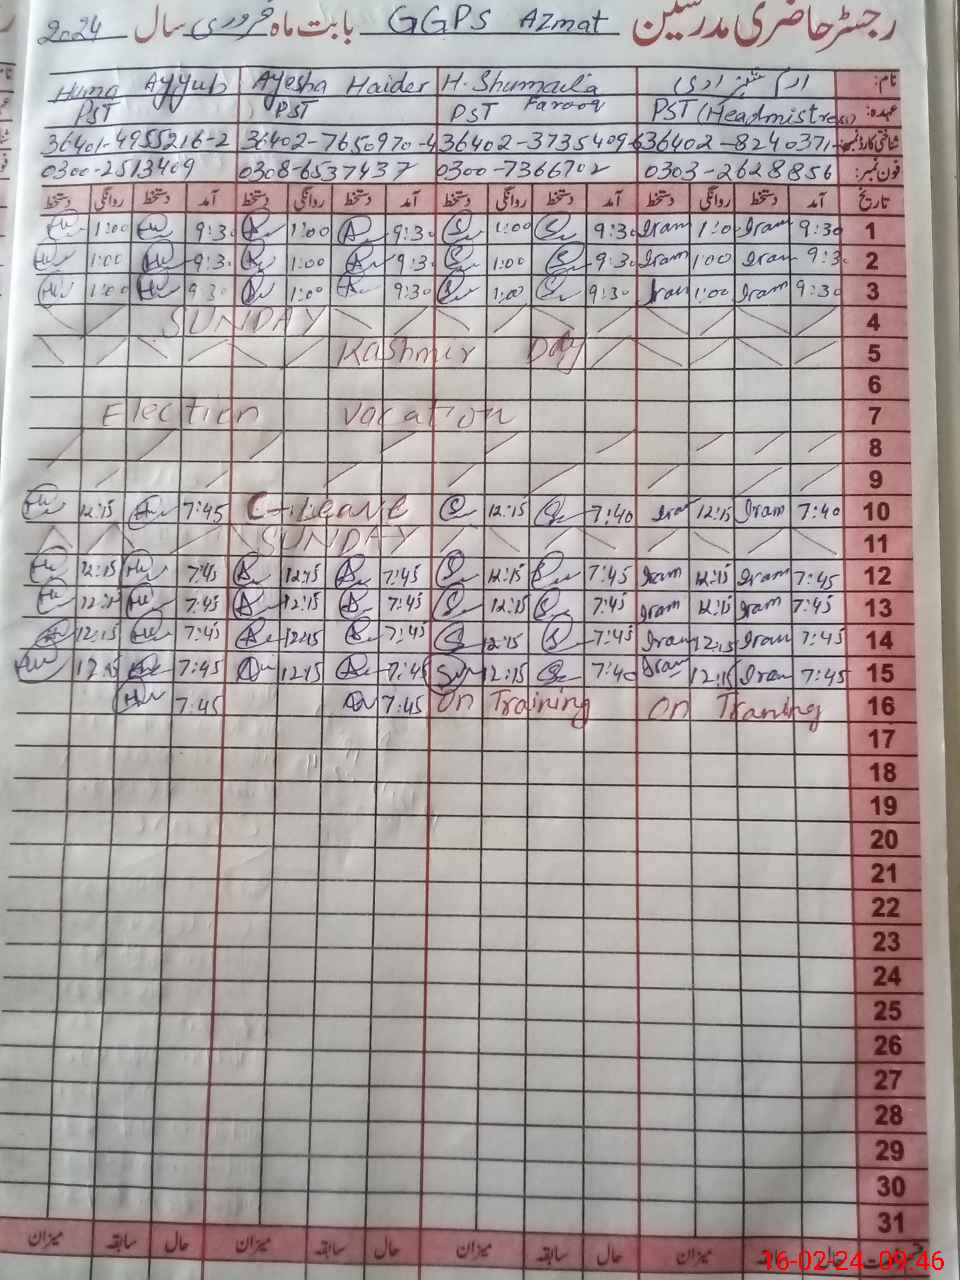 رجسٹر حاضری مدرسین GGPS Azmat بابت ماہ فروری سال 2024
نام: Huma Ayyub Ayesha Haider H. Shumaila Farooq
عہدہ: PST PST PST PST (Headmistress)
شناختی کارڈ نمبر: 36401-4955216-2 36402-7650970-4 36402-3735409-6 36402-8240371-
فون نمبر: 0300-2513409 0308-6537437 0300-7366702 0303-2628856
تاریخ آمد دستخط روانگی دستخط آمد دستخط روانگی دستخط آمد دستخط روانگی دستخط آمد دستخط روانگی دستخط
1 9:30 Iram 1:0 Iram 9:30 1:00 9:30 1:00 9:30 1:00
2 9:30 Iram 1:00 Iram 9:30 1:00 9:30 1:00 9:30 1:00
3 9:30 Iram 1:00 Iram 9:30 1:00 9:30 1:00 9:30 1:00
4 SUNDAY
5 Kashmir Day
6
7 Election vacation
8
9
10 7:40 Iram 12:15 Iram 7:40 12:15 C-Leave 7:45 12:15
11 SUNDAY
12 7:45 Iram 12:15 Iram 7:45 12:15 7:45 12:15 7:45 12:15
13 7:45 Iram 12:15 Iram 7:45 12:15 7:45 12:15 7:45
14 7:45 Iram 12:15 Iram 7:45 12:15 7:45 12:15 7:45 12:15
15 7:45 Iram 12:15 Iram 7:40 12:15 7:45 12:15 7:45 12:15
16 On Traning On Training 7:45 7:45
17
18
19
20
21
22
23
24
25
26
27
28
29
30
31
حال میزان سابقہ حال میزان سابقہ حال میزان سابقہ حال میزان
16-02-24 09:46